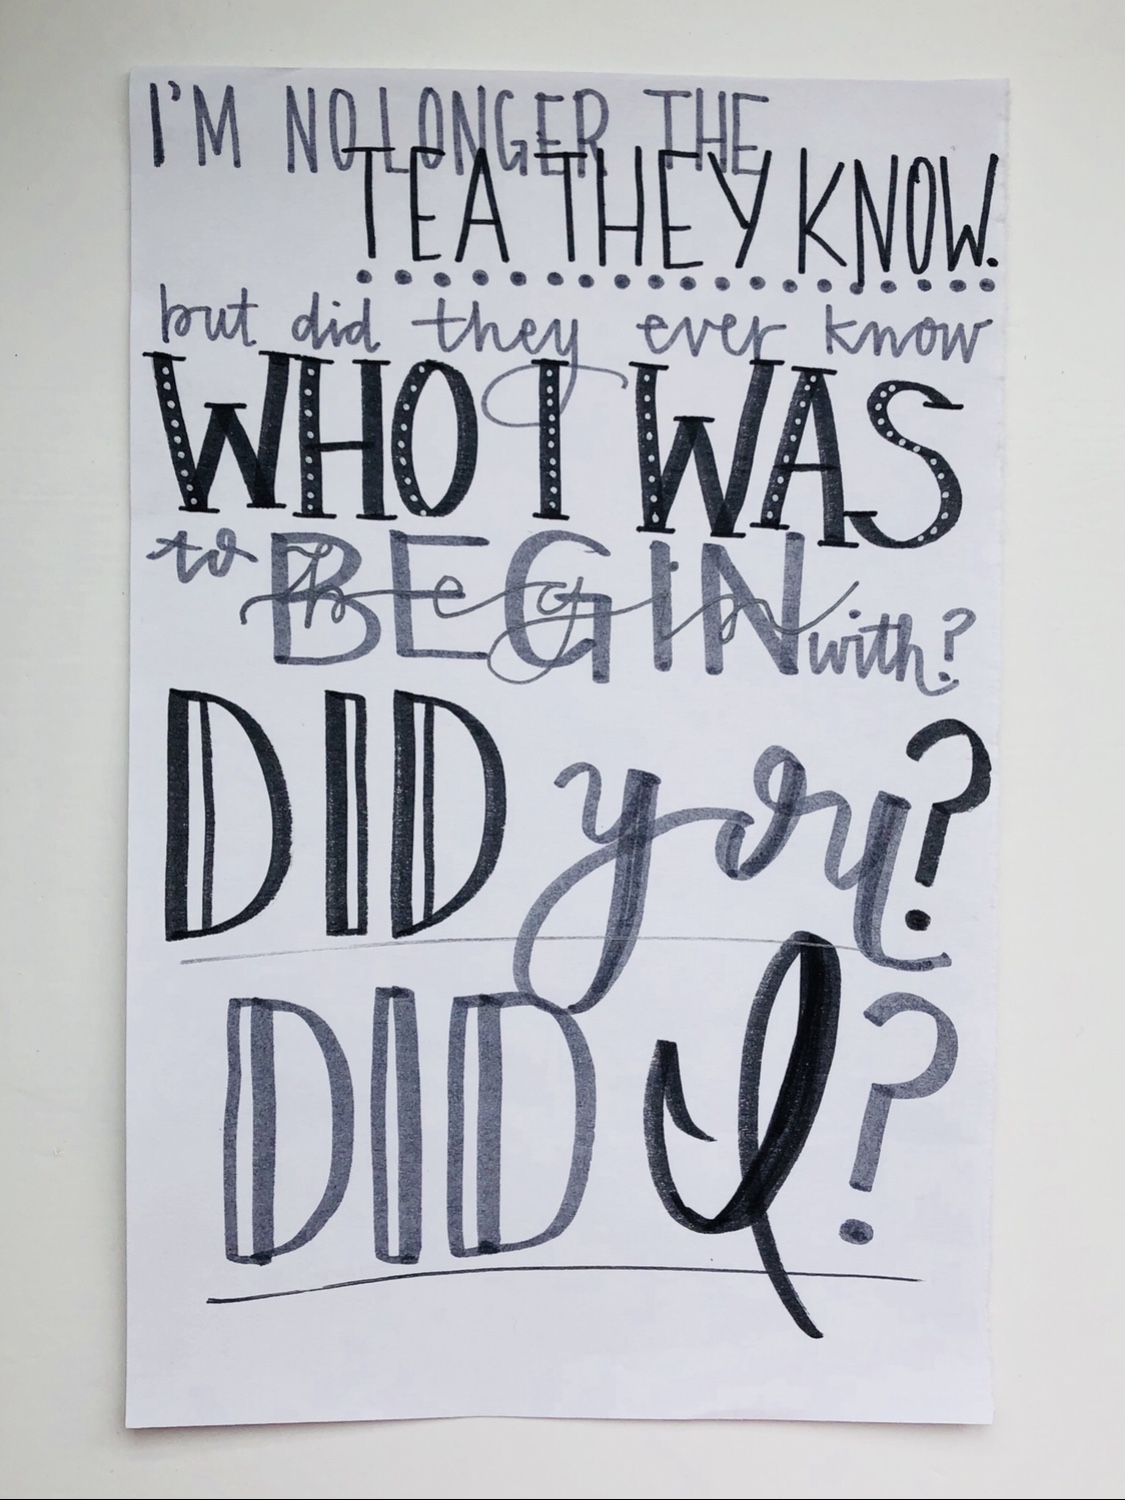 I'M NO LONGER THE
TEA THEY KNOW.
but did they ever know
WHO I WAS
to BEGIN with?
begin
DID you?
DID I?